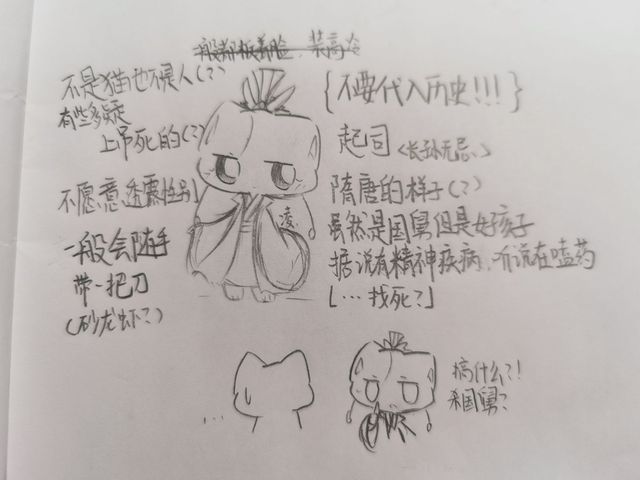 一般都板着脸、装高冷
不是猫也不是人(?)
有些多疑
上吊死的(?)
不愿意透露性别
一般会随手
带一把刀
(砂龙虾?)
{不要代入历史!!!}
起司<长孙无忌、>
隋唐的样子(?)
虽然是国舅但是好孩子
据说有精神疾病、听说在嗑药
[…找死?]
凌
…
搞什么?!
杀国舅?